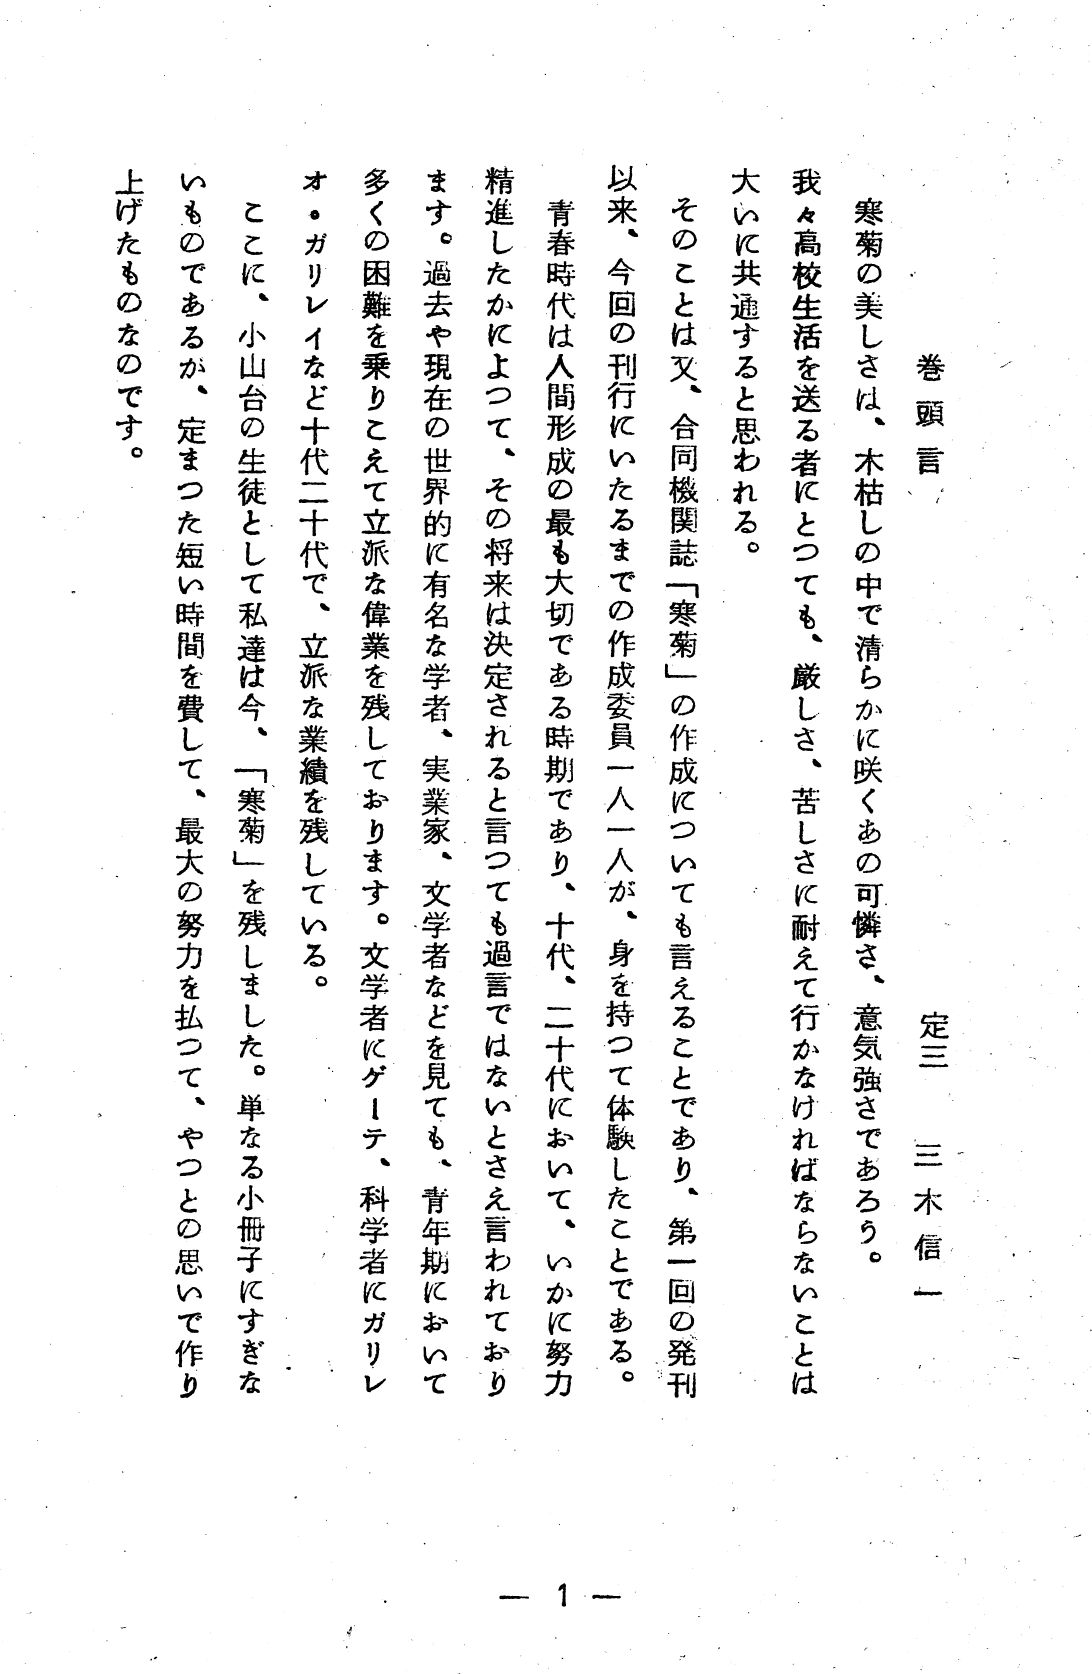 巻頭言　定三　三木信一
寒菊の美しさは、木枯しの中で清らかに咲くあの可憐さ、意気強さであろう。
我々高校生活を送る者にとつても、厳しさ、苦しさに耐えて行かなければならないことは
大いに共通すると思われる。
そのことは又、合同機関誌「寒菊」の作成についても言えることであり、第一回の発刊
以来、今回の刊行にいたるまでの作成委員一人一人が、身を持つて体験したことである。
青春時代は人間形成の最も大切である時期であり、十代、二十代において、いかに努力
精進したかによつて、その将来は決定されると言つても過言ではないとさえ言われており
ます。過去や現在の世界的に有名な学者、実業家、文学者などを見ても、青年期において
多くの困難を乗りこえて立派な偉業を残しております。文学者にゲーテ、科学者にガリレ
オ・ガリレイなど十代二十代で、立派な業績を残している。
ここに、小山台の生徒として私達は今、「寒菊」を残しました。単なる小冊子にすぎな
いものであるが、定まつた短い時間を費して、最大の努力を払つて、やつとの思いで作り
上げたものなのです。
— 1 —